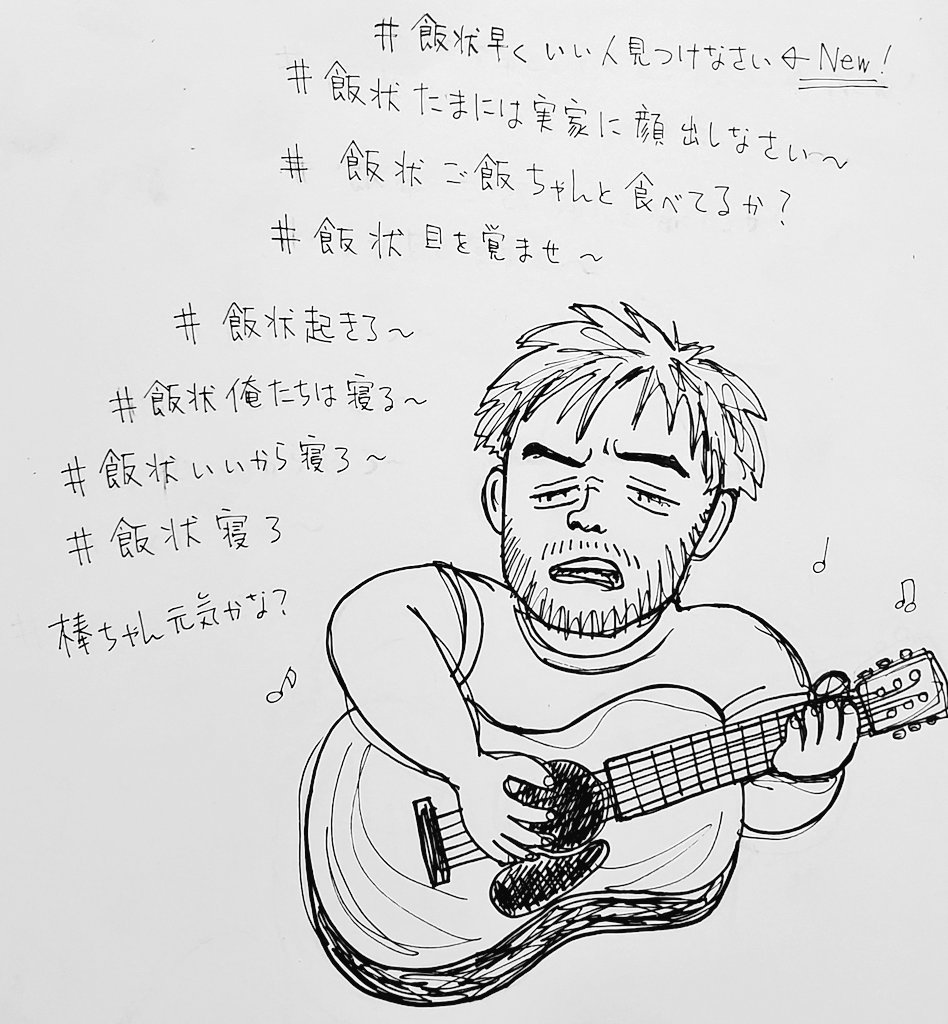 #飯状早くいい人見つけなさい←New!
#飯状たまには実家に顔出しなさい〜
#飯状ご飯ちゃんと食べてるか?
#飯状目を覚ませ〜
#飯状起きろ〜
#飯状俺たちは寝る〜
#飯状いいから寝ろ〜
#飯状寝ろ
棒ちゃん元気かな?